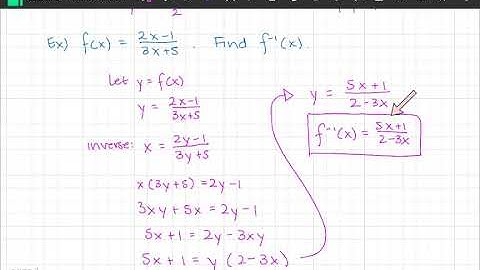 2
Ex) f(x) = 2x-1/3x+5 . Find f⁻¹(x).
Let y = f(x)
y = 2x-1/3x+5
inverse: x = 2y-1/3y+5
x(3y+5) = 2y-1
3xy + 5x = 2y-1
5x+1 = 2y-3xy
5x+1 = y (2-3x)
y = 5x+1/2-3x
f⁻¹(x) = 5x+1/2-3x